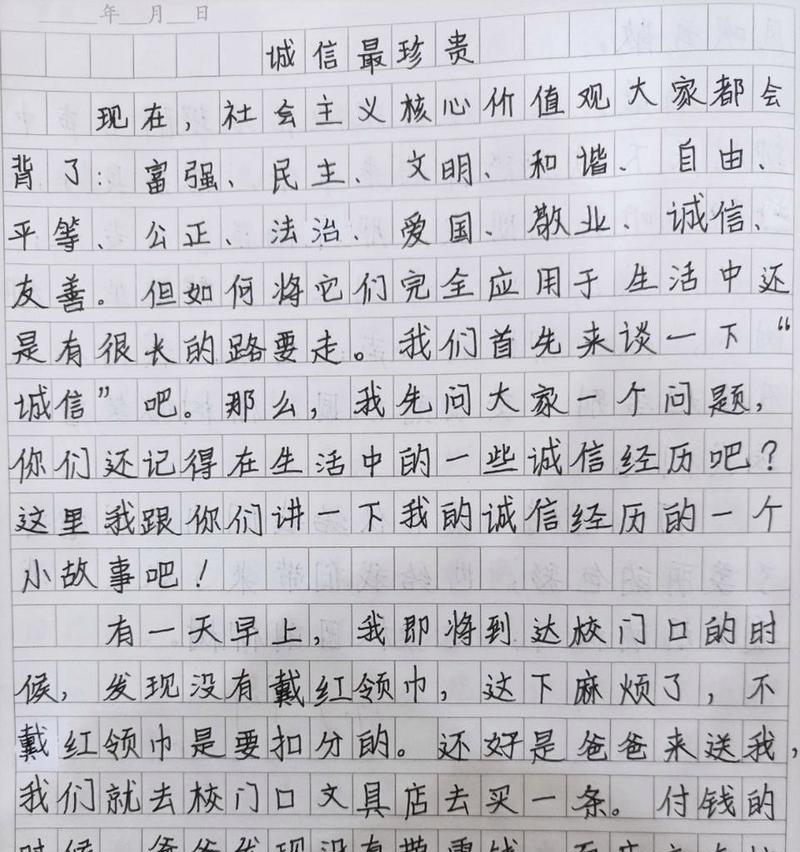 年 月 日
诚信最珍贵
现在，社会主义核心价值观大家都会
背了：富强、民主、文明、和谐、自由、
平等、公正、法治、爱国、敬业、诚信、
友善。但如何将它们完全应用于生活中还
是有很长的路要走。我们首先来谈一下“
诚信”吧。那么，我先问大家一个问题，
你们还记得在生活中的一些诚信经历吧？
这里我跟你们讲一下我的诚信经历的一个
小故事吧！
有一天早上，我即将到达校门口的时
候，发现没有戴红领巾，这下麻烦了，不
戴红领巾是要扣分的。还好是爸爸来送我，
我们就去校门口文具店去买一条。付钱的
时候，爸爸发现没有带零钱，